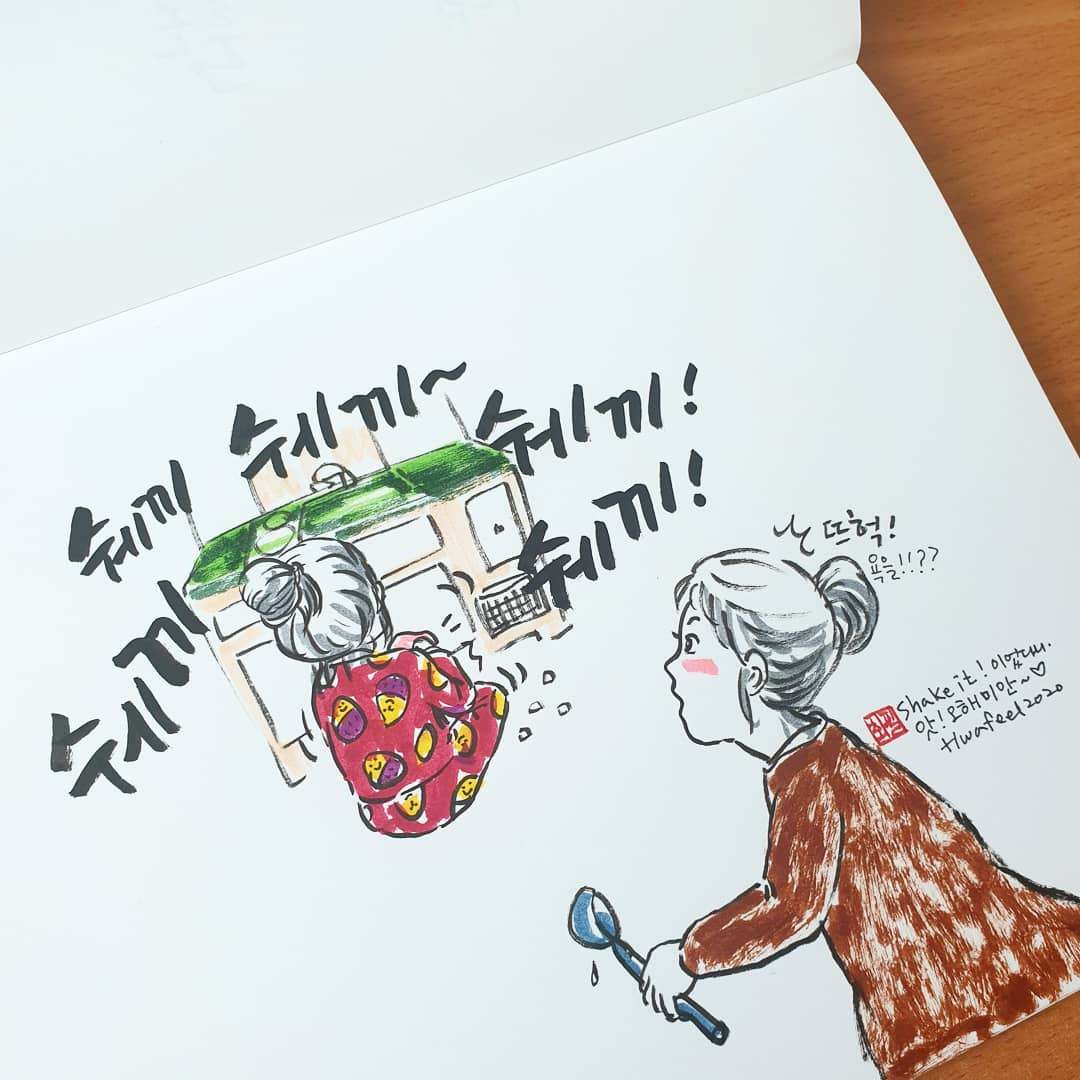 쉐끼~
쉐끼!
쉐끼
쉐끼!
쉐끼
난 뜨헉!
욕을!!??
shake it! 이었다니.
앗! 오해 미안~♡
Hwafeel 2020